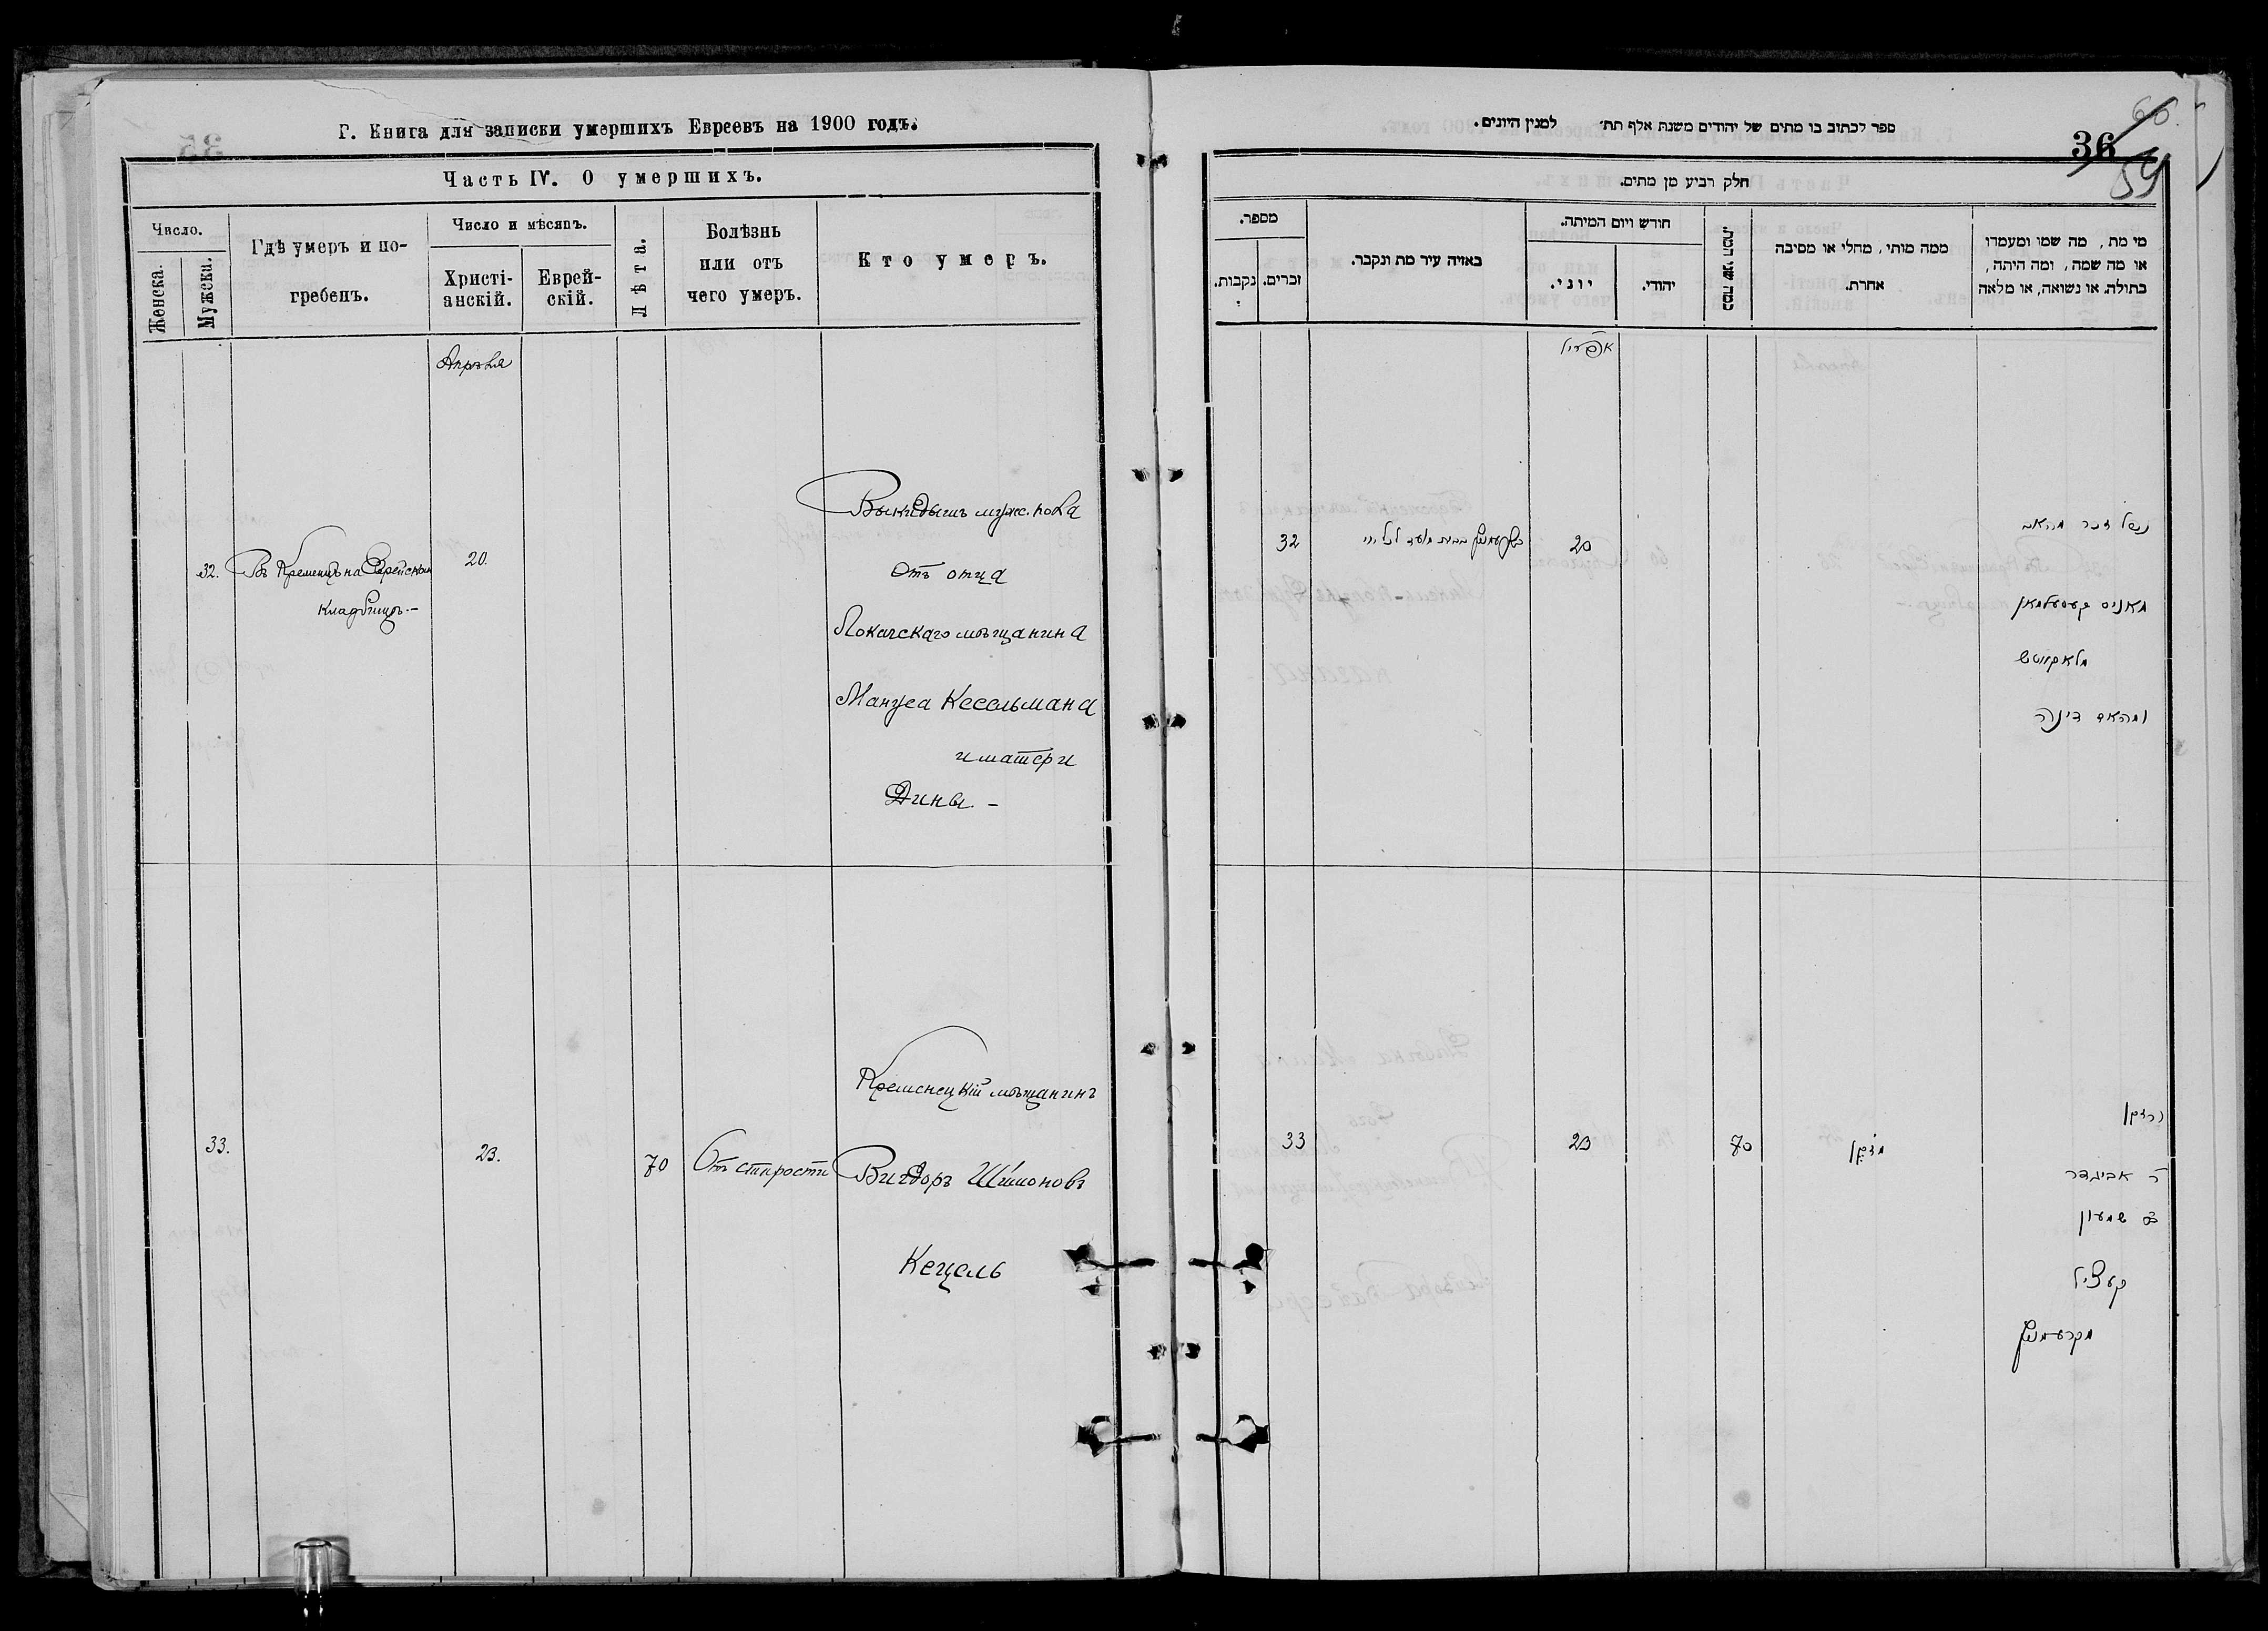 Г. Книга для записки умершихъ Евреевъ на 1900 годъ.
Часть IV. О умершихъ.
Число.
Женска.
Мужска.
Гдѣ умеръ и по-
гребенъ.
Число и мѣсяцъ.
Христі-
анскій.
Еврей-
скій.
Лѣта.
Болѣзнь
или отъ
чего умеръ.
Кто умеръ.
Апрѣля
32.
Въ Кременцѣ на Еврейском
кладбищѣ.-
20.
Выкидышъ муж. пола
отъ отца
Локачскаго мѣщанина
Мануса Кесельмана
и матери
Дины. -
33.
23.
70
Отъ старости
Кременецкій мѣщанинъ
Вигдоръ Шимоновъ
Кецель
ספר לכתוב בו מתים של יהודים משנת אלף תת׳ למנין היונים.
66
36
59
חלק רביע מן מתים.
מספר.
נקבות.
זכרים.
באזיה עיר מת ונקבר.
חודש ויום המיתה.
יוני.
יהודי.
כמה שני המת.
ממה מותי, מחלי או מסיבה
אחרת.
מי מת, מה שמו ומעמדו
או מה שמה, ומה היתה,
בתולה, או נשואה, או מלאה
אפריל
32
20
נפל זכר מהאב
מאניס קעסעלמאן
מלאקוטש
ומהאם דינה
33
23
70
מזקן
הזקן
ר אביגדר
ב שמעון
קעציל
מקרעמניץ